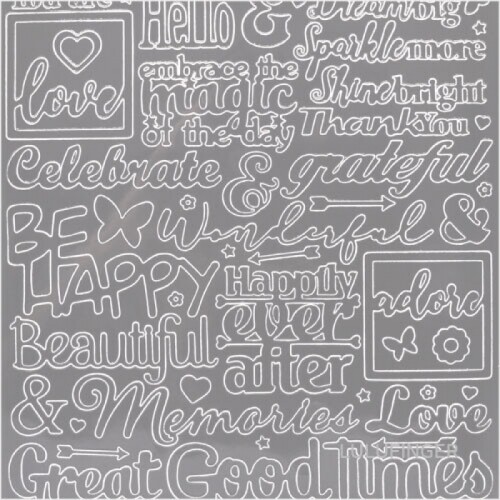 You are
Hello
&
Dreambig
Sparklemore
love
embrace the
magic
of the day
Shinebright
ThankYou
Celebrate
&
grateful
BE
HAPPY
Wonderful
&
Happily
ever
after
adore
Beautiful
&
Memories
Love
Great
Good
Times
LULUFINGER